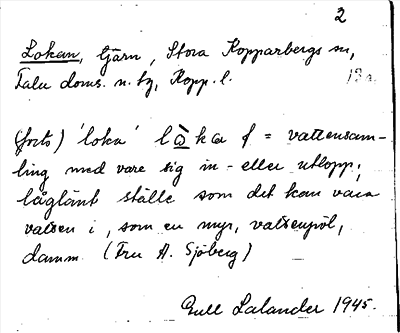 2
Lokan, tjärn, Stora Kopparbergs sn,
Falu doms. n. tg, Kopp. l.
13a.
(forts) 'loka' lò̀ka f = vattensam-
ling med vare sig in- eller utlopp;
låglänt ställe som det kan vara
vatten i, som en myr, vattenpöl,
damm. (Fru A. Sjöberg)
Gull Lalander 1945.